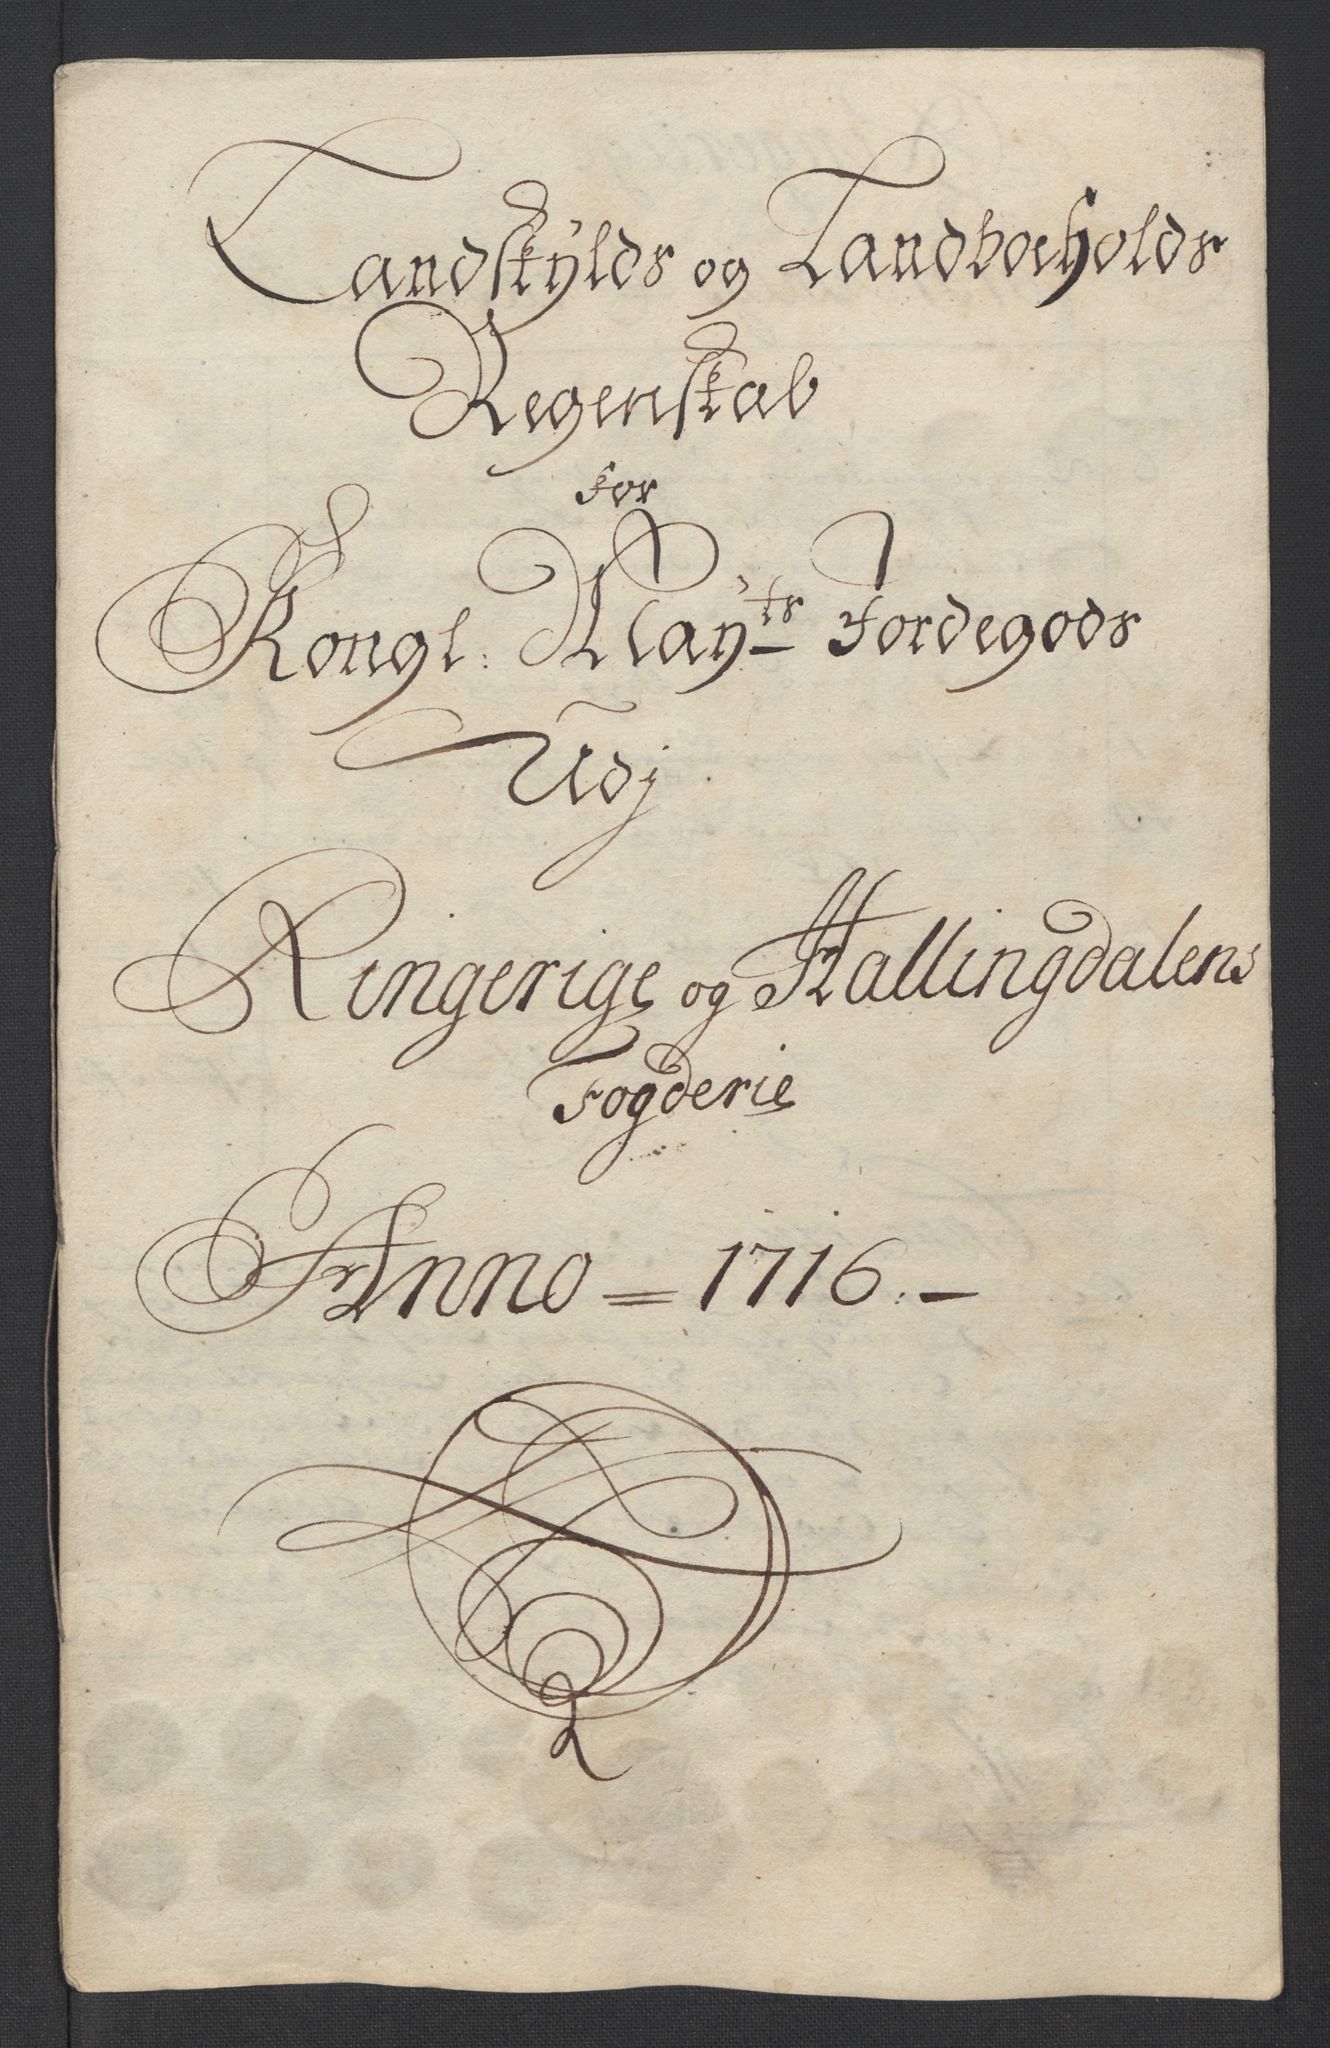 Landskylds og Landboeholds
Regenskab
for
Kongl: Mayts Jordegods
Udj
Ringerige og Hallingdalens
Fogderie
Anno = 1716.-